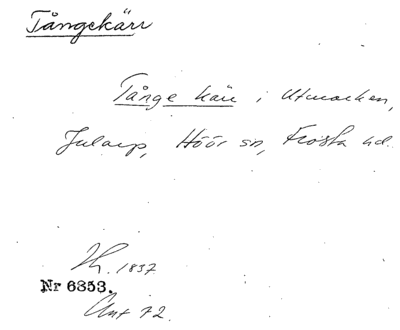 Tångekärr
Tånge kärr i Utmarken,
Jularp, Höör sn, Frosta hd.
Th. 1837
Nr 6853.
Ant 72.